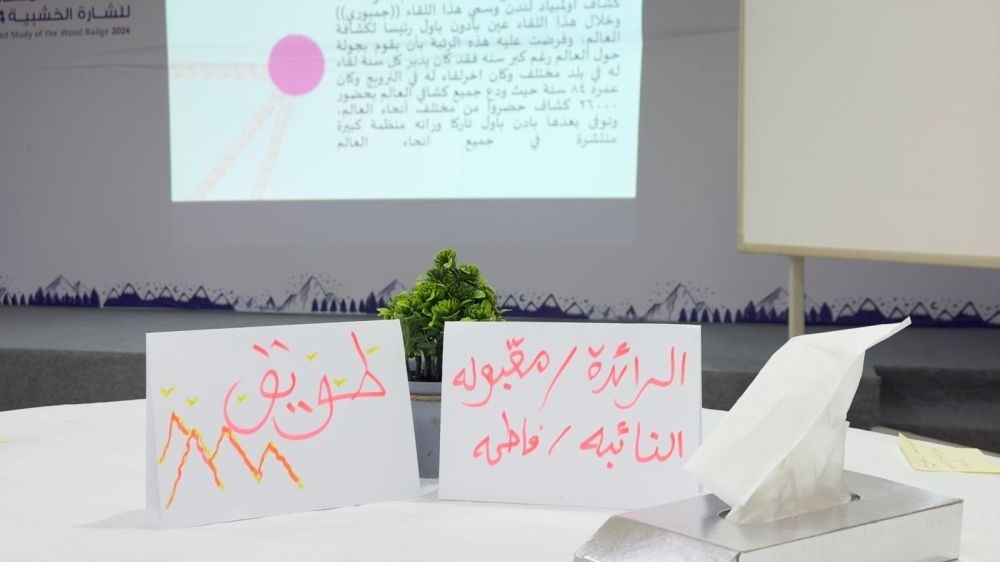 للشارة الخشبية
ed Study of the Wood Badge 2024
كشاف اولمبياد لندن وسمي هذا اللقاء ((جمبوري))
وخلال هذا اللقاء عين بادون باول رئيسا لكشافة
العالم، وفرضت عليه هذه الرتبة بأن يقوم بجولة
حول العالم رغم كبر سنه فقد كان يدير كل سنة لقاء
له في بلد مختلف وكان اخرلقاء له في النرويج وكان
عمره ٨٤ سنة حيث ودع جميع كشافي العالم بحضور
٢٦٠٠٠ كشاف حضروا من مختلف أنحاء العالم،
وتوفي بعدها بادن باول تاركا وراءه منظمة كبيرة
منتشرة في جميع انحاء العالم
طويق
الرائدة / مقبوله
النائبه / فاطمه